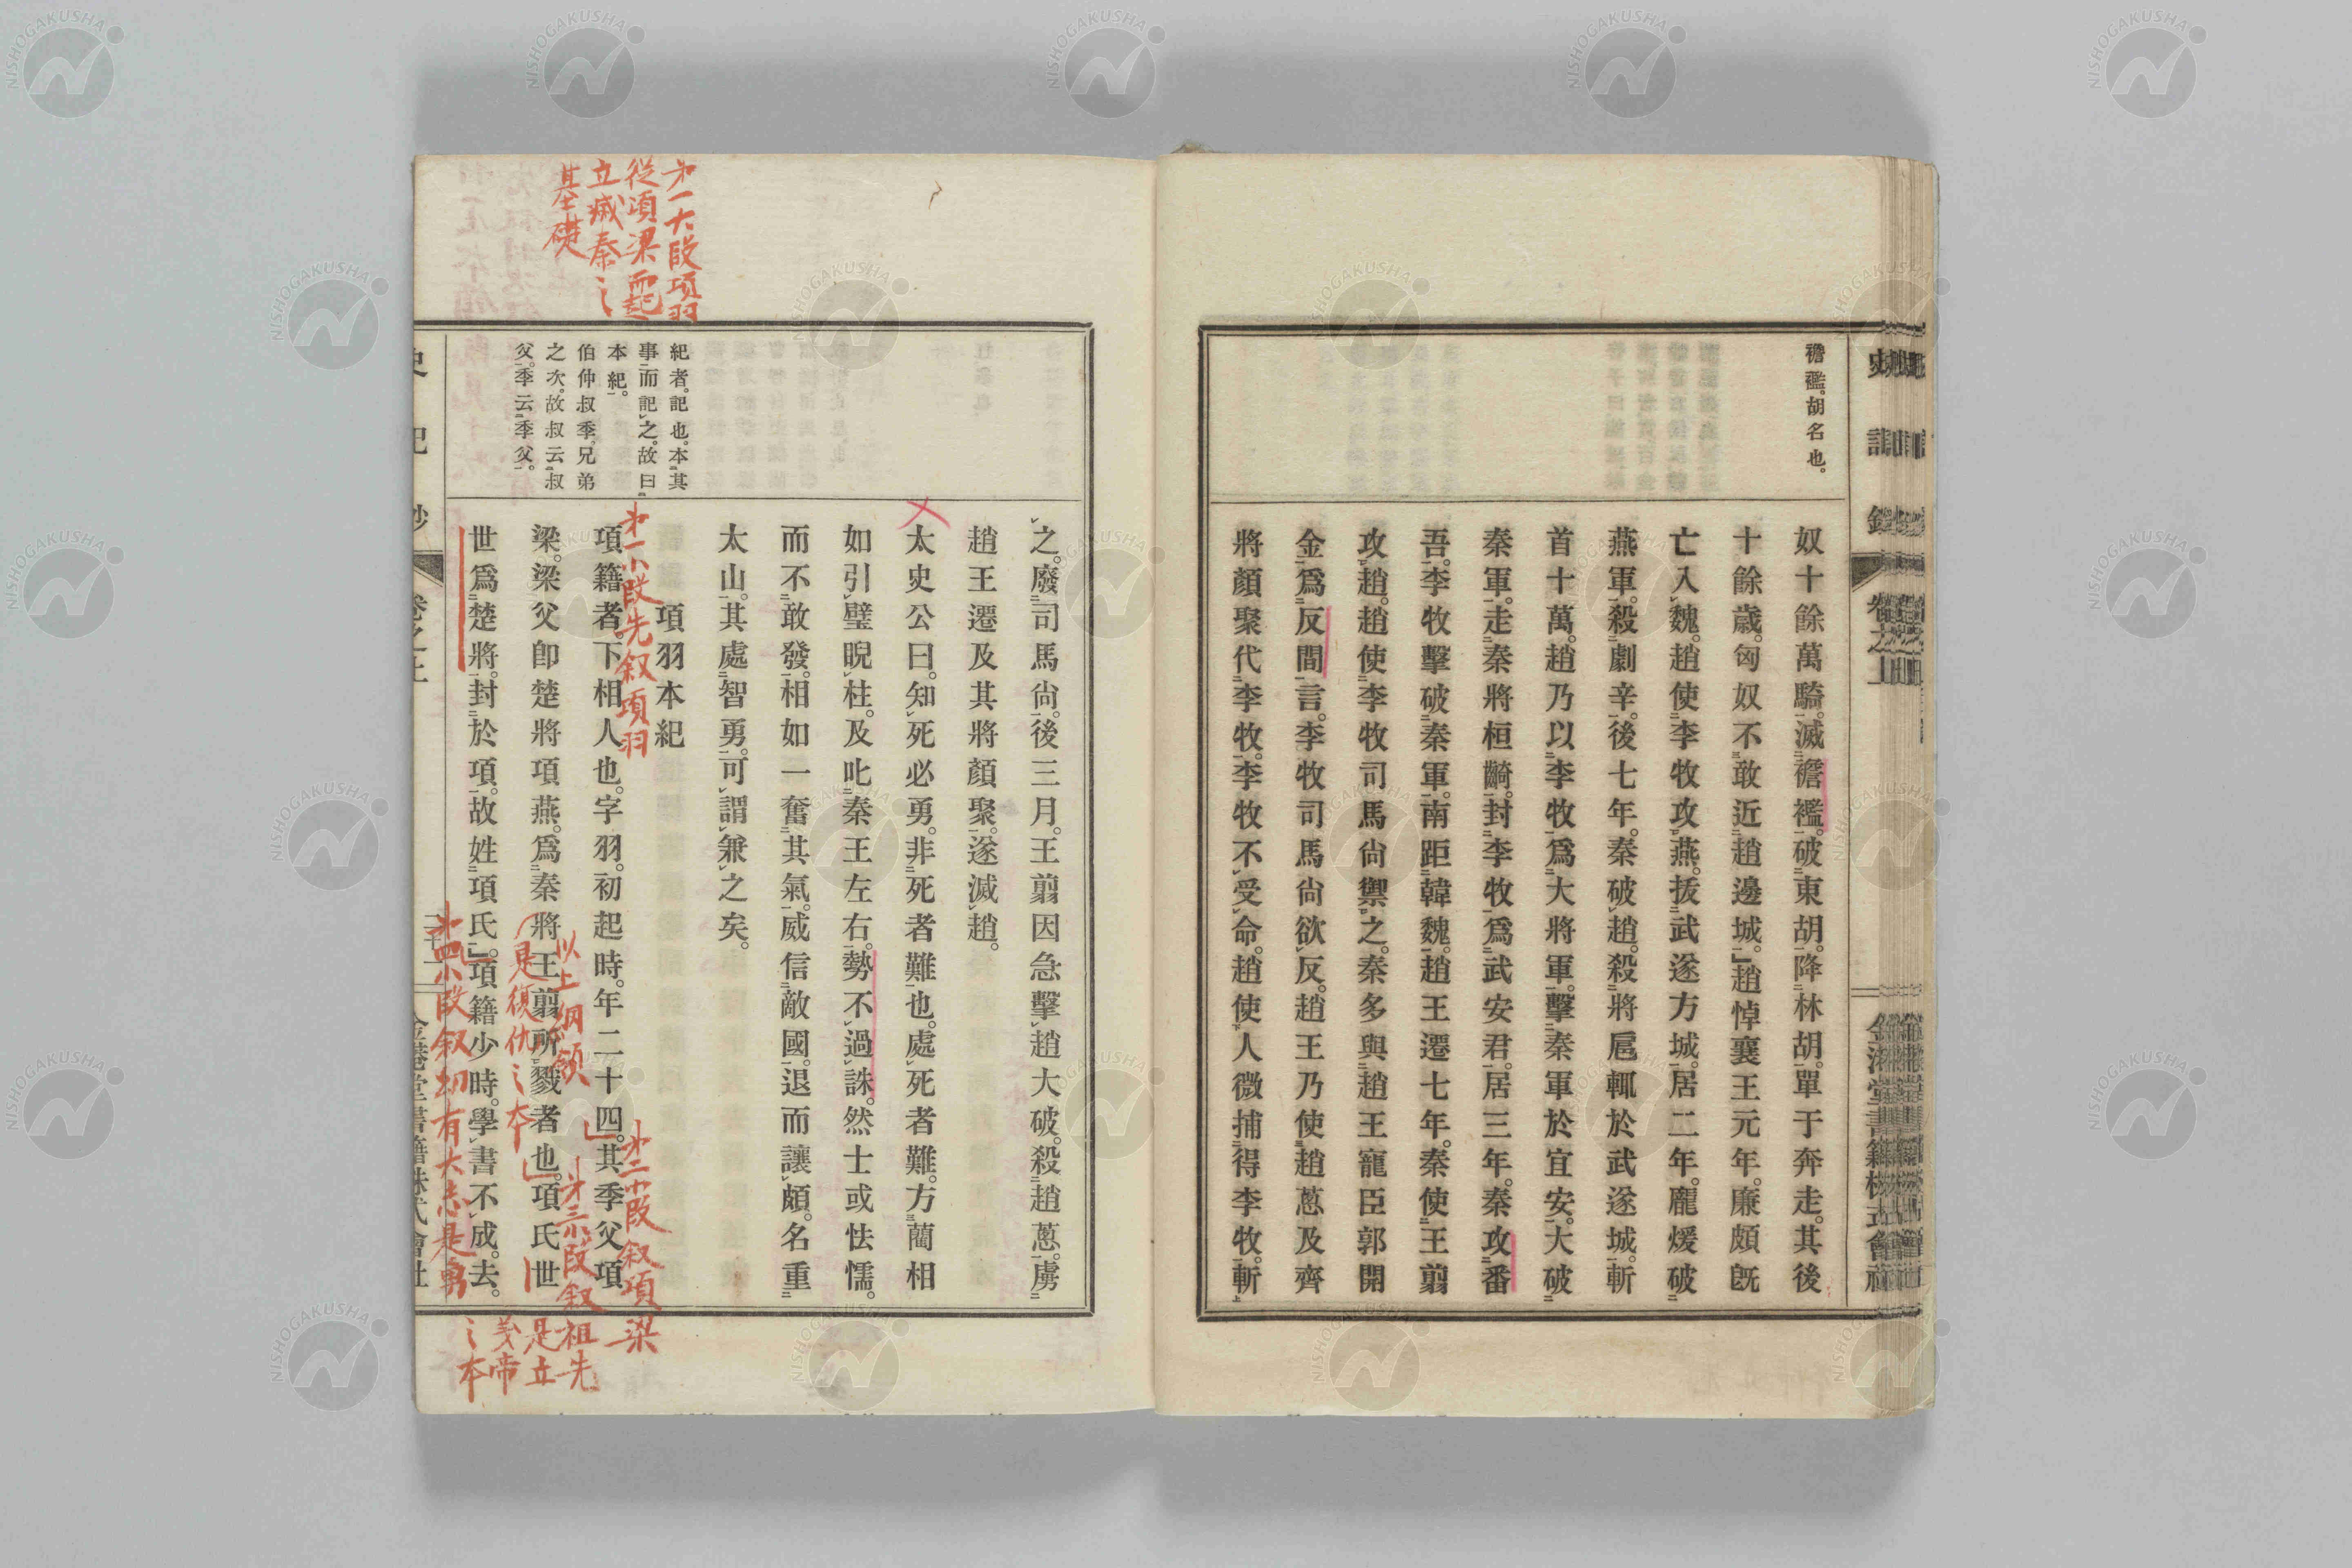 襜襤。胡名也。
奴十餘萬騎。滅襜襤。破東胡。降林胡。單于奔走。其後
十餘歲。匈奴不敢近趙邊城。」趙悼襄王元年。廉頗既
亡入魏。趙使李牧攻燕。拔武遂方城。居二年。龐煖破
燕軍。殺劇辛。後七年。秦破趙。殺將扈輒於武遂城。斬
首十萬。趙乃以李牧爲大將軍。擊秦軍於宜安。大破
秦軍。走秦將桓齮。封李牧爲武安君。居三年。秦攻番
吾。李牧擊破秦軍。南距韓魏。趙王遷七年。秦使王翦
攻趙。趙使李牧司馬尙禦之。秦多與趙王寵臣郭開
金。爲反間言。李牧司馬尙欲反。趙王乃使趙蔥及齊
將顏聚代李牧。李牧不受命。趙使人微捕得李牧。斬
之。廢司馬尙。後三月。王翦因急擊趙大破。殺趙蔥。虜
趙王遷及其將顏聚。遂滅趙。
太史公曰。知死必勇。非死者難也。處死者難。方藺相
如引璧睨柱。及叱秦王左右。勢不過誅。然士或怯懦。
而不敢發。相如一奮其氣。威信敵國。退而讓頗。名重
太山。其處智勇。可謂兼之矣。
項羽本紀
項籍者。下相人也。字羽。初起時。年二十四。其季父項
梁。梁父卽楚將項燕。爲秦將王翦所戮者也。項氏世
世爲楚將。封於項。故姓項氏。」項籍少時。學書不成。去。
紀者。記也。本其
事而記之。故曰
本紀。
伯仲叔季。兄弟
之次。故叔云叔
父。季云季父。
第一大段項羽
從項梁而起
立滅秦之
基礎
第一小段先叙項羽
第二小段叙項梁
第三小段叙祖先
是立
義帝
之本
以上綱領
是復仇之本
第四小段叙幼有大志是
卷之上
金港堂書籍株式會社
NISHOGAKUSHA